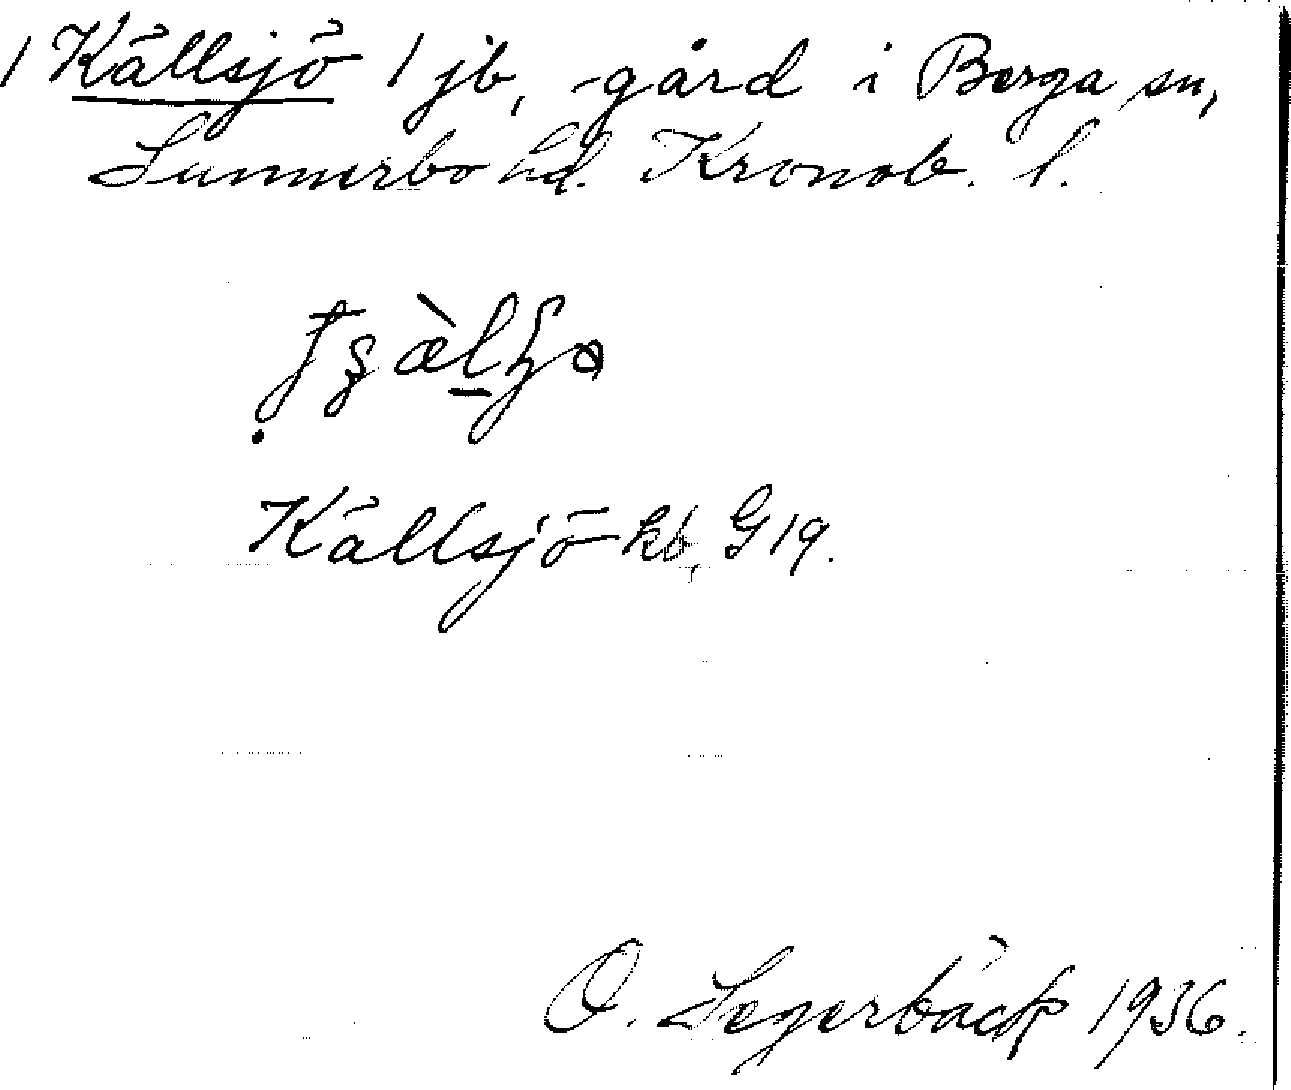 / Källsjö / jb, gård i Berga sn,
Sunnerbo hd. Kronob. l.
Källsjö kb, G 19.
O. Segerbäck 1936.